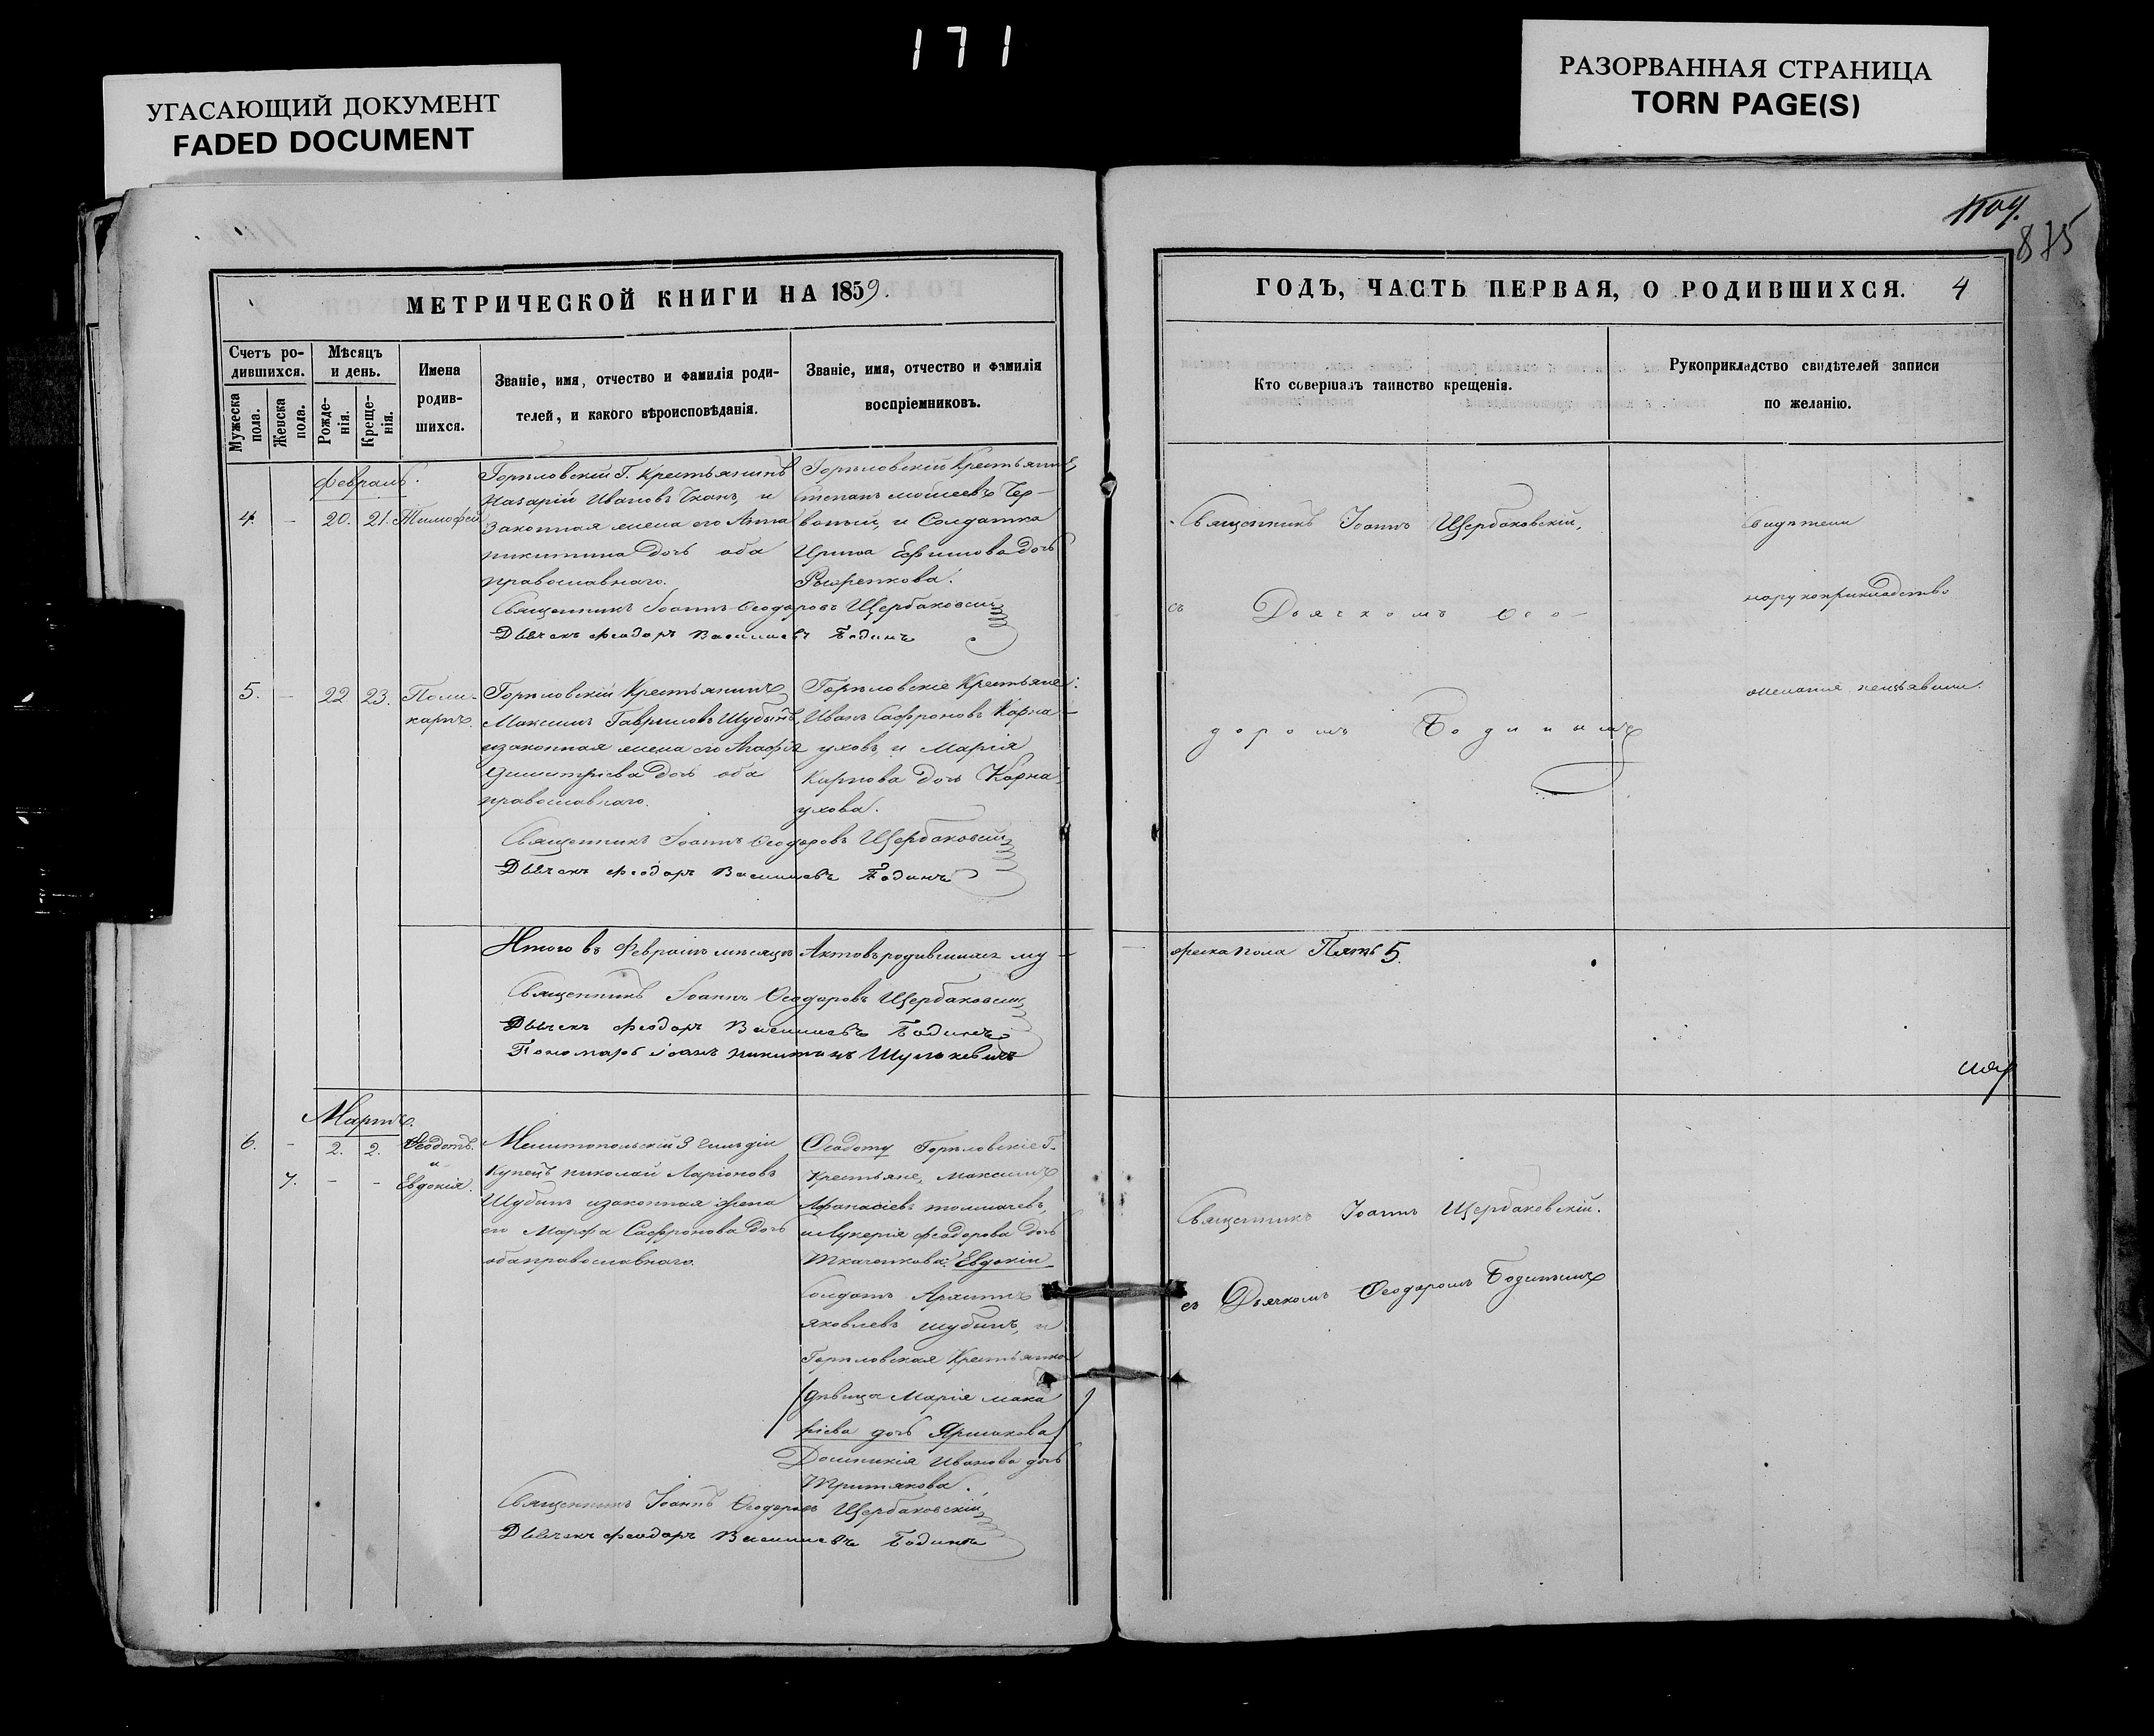 171
УГАСАЮЩИЙ ДОКУМЕНТ
FADED DOCUMENT
РАЗОРВАННАЯ СТРАНИЦА
TORN PAGE(S)
875
МЕТРИЧЕСКОЙ КНИГИ НА 1859.
Счетъ ро-
дившихся.
Мужеска пола.
Женска пола.
Мѣсяцъ
и день.
Рожде-
нія.
Креще-
нія.
Имена
родив-
шихся.
Званіе, имя, отчество и фамилія роди-
телей, и какого вѣроисповѣданія.
Званіе, имя, отчество и фамилія
воспріемниковъ.
февраль.
4. – 20. 21. Тимофей
Горѣловскій Г. Крестьянинъ
Назарій Ивановъ Ткачъ, и
Законная жена его Анна
никитина Дочь оба
православнаго.
Горѣловскій Крестьянинъ
Степанъ моисеевъ Чер-
воный, и Солдатка
Ирина Ефимова дочь
Священникъ Іоаннъ Ѳеодоровъ Щербаковскій
Дьячекъ Феодоръ Васильевъ Бодинъ
5. – 22 23. Поли-
карпъ.
Горѣловскій Крестьянинъ
Максимъ Гавриловъ Шубинъ,
изаконная жена его Агафія
Димитріева Дочь оба
православнаго.
Горѣловскіе Крестьяне:
Иванъ Сафроновъ Карна-
уховъ, и Марія
Карпова Дочь Карна-
ухова.
Священникъ Іоаннъ Ѳеодоровъ Щербаковскій
Дьячекъ Феодоръ Васильевъ Бодинъ
Итого въ Февралѣ мѣсяцѣ Актовъ родившихся му-
Священникъ Іоаннъ Ѳеодоровъ Щербаковскій
Дьячекъ Феодоръ Васильевъ Бодинъ
Пономарь Іоанъ никитинъ Шулькевичъ
Мартъ.
6. – 2. 2. Ѳеодотъ.
и
7. – – Евдокія.
Мелитопольскій 3 Гильдіи
Купецъ николай Ларіоновъ
Шубинъ изаконная жена
его Марфа Сафронова Дочь
оба православнаго.
Ѳеодоту Горѣловскіе Г.
Крестьяне, Максимъ
Афанасіевъ толмачевъ,
и Лукерія феодорова дочь
Ткаченкова: Евдокіи
Солдатъ Архипъ
яковлевъ шубинъ, и
Горѣловская Крестьянка
(дѣвица Марія мака
ріева дочь Ярмакова)
Домникія Иванова дочь
Третякова.
Священникъ Іоаннъ Ѳеодоровъ Щербаковскій
Дьячекъ Феодоръ Васильевъ Бодинъ
ГОДЪ, ЧАСТЬ ПЕРВАЯ, О РОДИВШИХСЯ. 4
Кто совершалъ таинство крещенія.
Рукоприкладство свидѣтелей записи
по желанію.
Священникъ Іоаннъ Щербаковскій,
съ Дьячкомъ Ѳео-
доромъ Бодинымъ
Свидѣтели
нарукоприкладство
желанія неизъявили.
жеска пола Пять 5.
Священникъ Іоаннъ Щербаковскій.
съ Дьячкомъ Ѳеодоромъ Бодинымъ